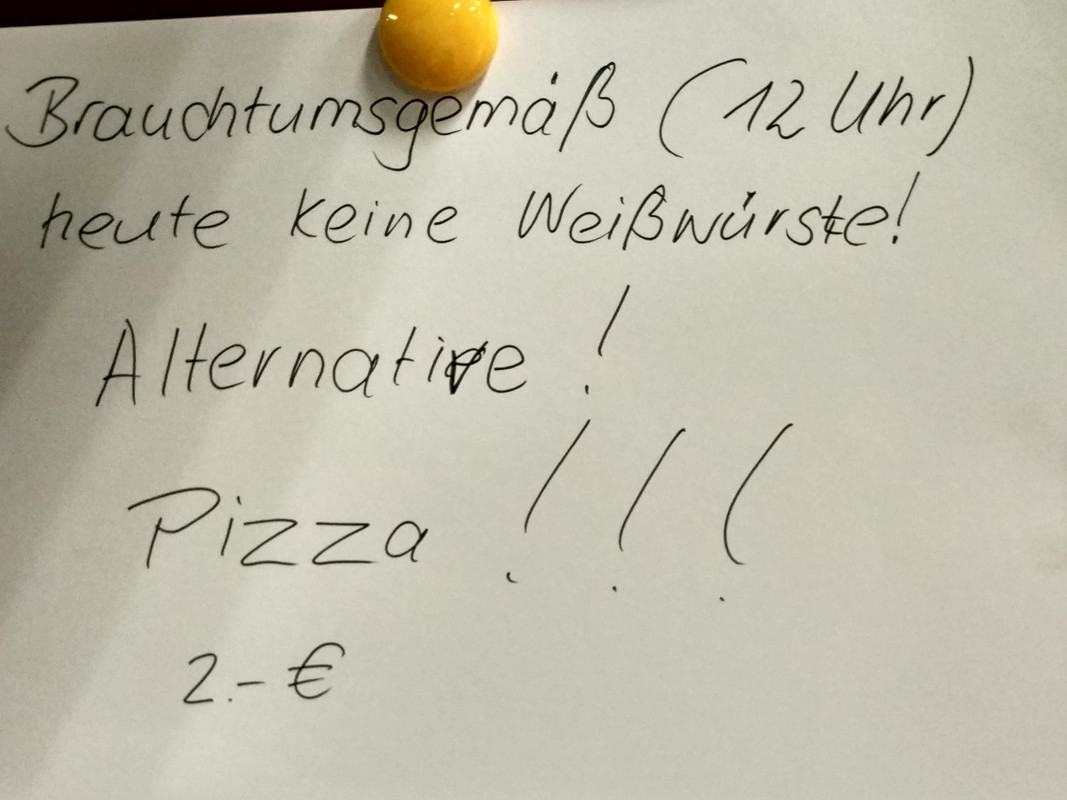 Brauchtumsgemäß (12 Uhr)
heute keine Weißwürste!
Alternative!
Pizza !!!
2.- €